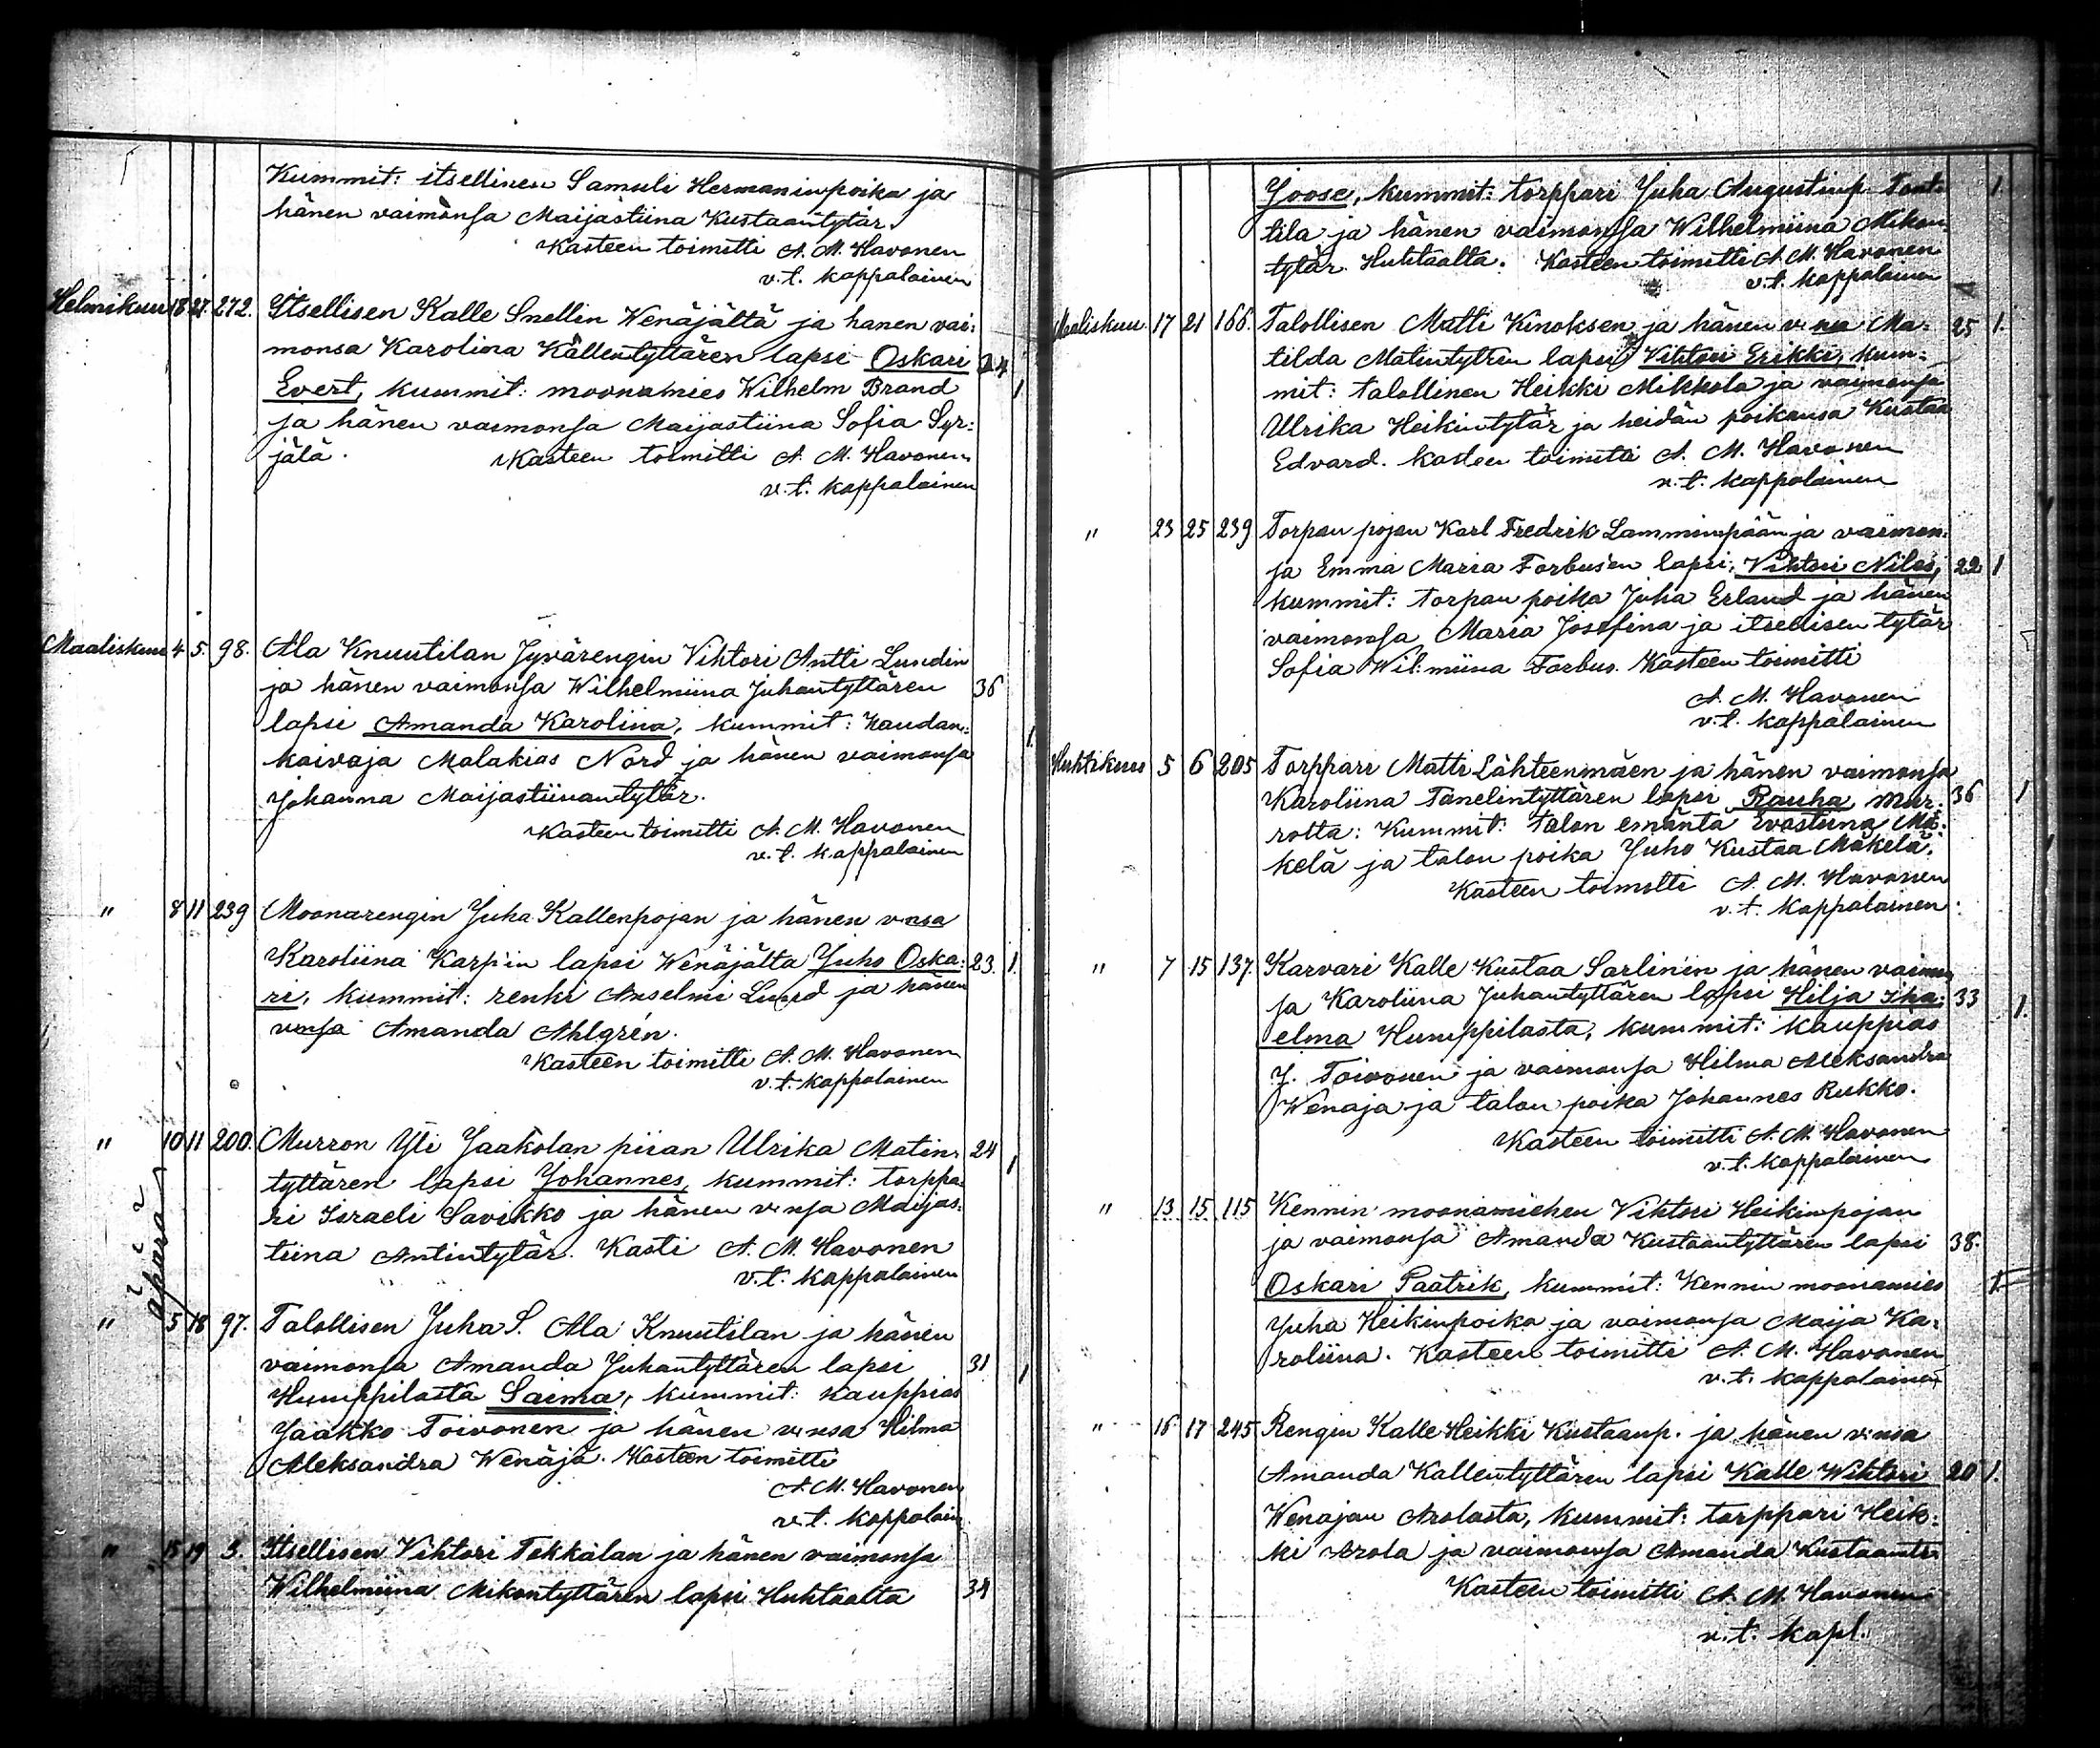 Kummit: itsellinen Samuli Hermaninpoika ja
hänen vaimonsa Maijastiina Kustaantytär.
Kasteen toimitti A. M. Havonen
v.t. kappalainen
Helmikuu 18 27 272. Itsellisen Kalle Snellin Wenäjältä ja hänen vai:
monsa Karolina Kallentyttären lapsi Oskari 24
Evert, kummit: moonamies Wilhelm Brand 1
ja hänen vaimonsa Maijastiina Sofia Syr:
jälä. Kasteen toimitti A. M. Havonen
v.t. kappalainen
Maaliskuu 4 5. 98. Ala Knuutilan Jyvärengin Vihtori Antti Lundin
ja hänen vaimonsa Wilhelmiina Juhantyttären 36
lapsi Amanda Karolina, kummit: haudan:
kaivaja Malakias Nord ja hänen vaimonsa 1.
Johanna Maijastiinantytär.
Kasteen toimitti A. M. Havonen
v.t. kappalainen
" 8 11 239 Moonarengin Juha Kallenpojan ja hänen v:nsa
Karoliina Karp'in lapsi Wenäjältä Juho Oska: 23. 1.
ri, kummit: renki Anselmi Lund ja hänen
v:nsa Amanda Ahlgrén.
Kasteen toimitti A. M. Havonen
v.t. kappalainen
" 10 11 200. Murron Yli Jaakolan piian Ulrika Matin: 24
tyttären lapsi Johannes, kummit: torppa: 1
ri Israeli Savikko ja hänen v:nsa Maijas:
tiina Antintytär. Kasti A. M. Havonen
v.t. kappalainen
äpärä
" 5 18 97. Talollisen Juha S. Ala Knuutilan ja hänen
vaimonsa Amanda Juhantyttären lapsi 31
Humppilasta Saima, kummit: kauppias 1
Jaakko Toivonen ja hänen v:nsa Hilma
Aleksandra Wenäjä. Kasteen toimitti
A. M. Havonen
v.t. kappalain
" 15 19 3. Itsellisen Vihtori Tekkalan ja hänen vaimonsa
Wilhelmiina Mikontyttären lapsi Huhtaalta 34
Joose, kummit: torppari Juha Augustinp. Tont: 1.
tila ja hänen vaimonsa Wilhelmiina Mikon
tytär Huhtaalta. Kasteen toimitti A. M. Havonen
v.t. kappalainen
Maaliskuu 17 21 166. Talollisen Matti Kinoksen ja hänen v:nsa Ma: 25 1.
tilda Matintytren lapsi Vihtori Erikki, kum:
mit: talollinen Heikki Mikkola ja vaimonsa
Ulrika Heikintytär ja heidän poikansa Kustaa
Edvard. Kasteen toimitti A. M. Havonen
v.t. kappalainen
" 23 25 239 Torpan pojan Karl Fredrik Lamminpään ja vaimon:
sa Emma Maria Forbus'en lapsi, Vihtori Nilos, 22 1
kummit: torpan poika Juha Erland ja hänen
vaimonsa Maria Josefina ja itsellisen tytär
Sofia Wil:miina Forbus. Kasteen toimitti
A. M. Havonen
v.t. kappalainen
Huhtikuu 5 6 205 Torppari Matti Lähteenmäen ja hänen vaimonsa
Karoliina Tanelintyttären lapsi Rauha Mur: 36 1
rolta: Kummit: talon emäntä Evastiina Mä:
kelä ja talon poika Juho Kustaa Mäkelä.
Kasteen toimitti A. M. Havonen
v.t. kappalainen
" 7 15 137. Karvari Kalle Kustaa Sarlin'in ja hänen vaimon
sa Karoliina Juhantyttären lapsi Hilja Iha: 33
elma Humppilasta, kummit: kauppias 1.
J. Toivonen ja vaimonsa Hilma Aleksandra
Wenäjä ja talon poika Johannes Rukko.
Kasteen toimitti A. M. Havonen
v.t. kappalainen
" 13 15 115 Kennin moonamiehen Vihtori Heikinpojan
ja vaimonsa Amanda Kustaantyttären lapsi 38.
Oskari Paatrik, kummit: Kennin moonamies 1.
Juha Heikinpoika ja vaimonsa Maija Ka:
roliina. Kasteen toimitti A. M. Havonen
v.t. kappalainen
" 16 17 245 Rengin Kalle Heikki Kustaanp. ja hänen v:nsa
Amanda Kallentyttären lapsi Kalle Wihtori 20 1.
Wenäjän Arolasta, kummit: torppari Heik:
ki Arola ja vaimonsa Amanda Kustaantr.
Kasteen toimitti A. M. Havonen
v.t. kapl.